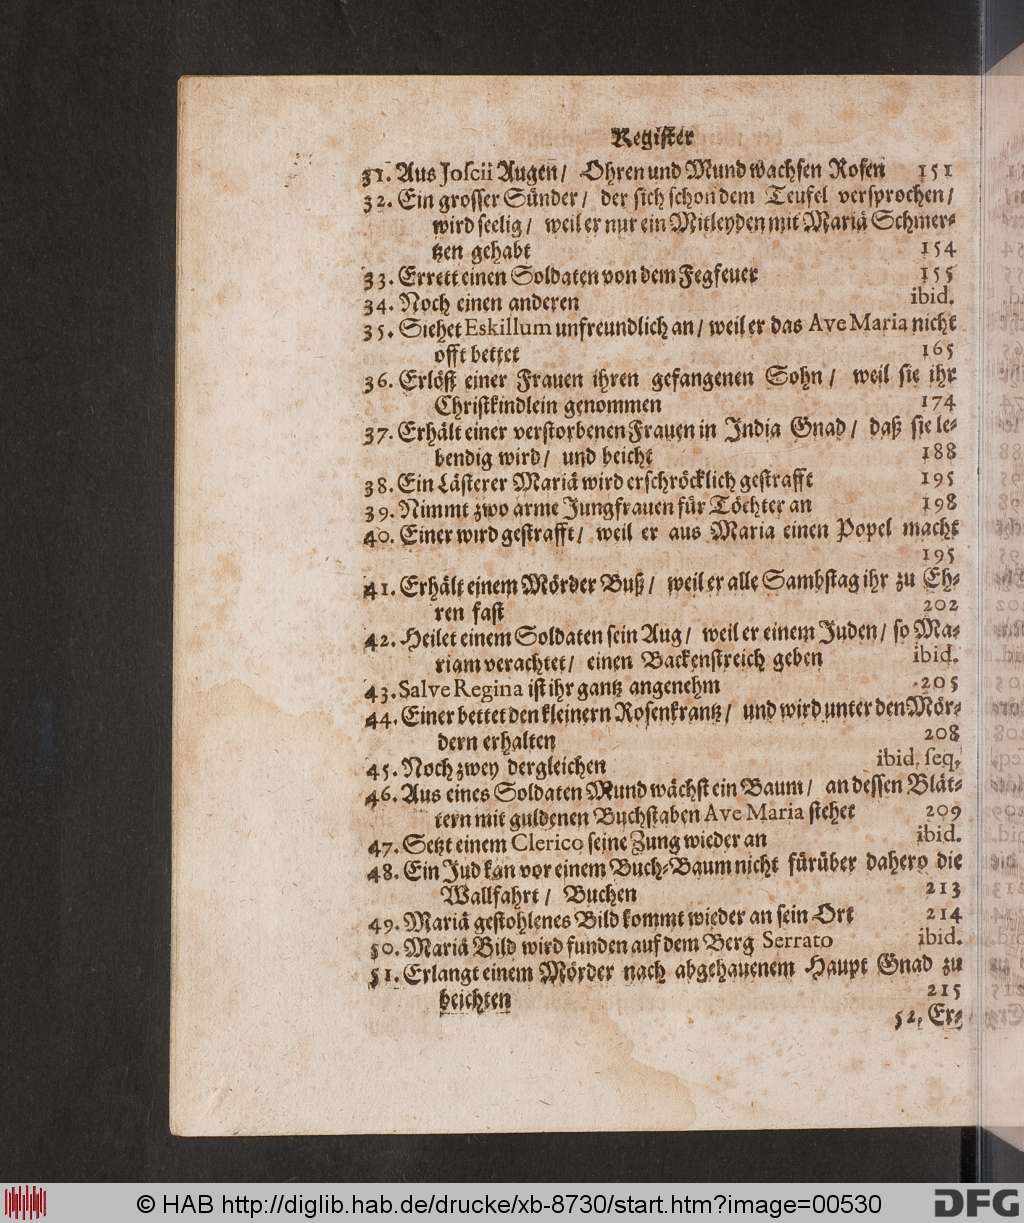 Register
31. Aus Joscii Augen / Ohren und Mund wachsen Rosen 151
32. Ein grosser Sünder / der sich schon dem Teufel versprochen /
wird seelig / weil er nur ein Mitleyden mit Mariä Schmer-
tzen gehabt 154
33. Errett einen Soldaten von dem Fegfeuer 155
34. Noch einen anderen ibid.
35. Siehet Eskillum unfreundlich an / weil er das Ave Maria nicht
offt bettet 165
36. Erlöst einer Frauen ihren gefangenen Sohn / weil sie ihr
Christkindlein genommen 174
37. Erhält einer verstorbenen Frauen in India Gnad / daß sie le-
bendig wird / und beicht 188
38. Ein Lästerer Mariä wird erschröcklich gestrafft 195
39. Nimmt zwo arme Jungfrauen für Töchter an 198
40. Einer wird gestrafft / weil er aus Maria einen Popel macht
195
41. Erhält einem Mörder Buß / weil er alle Sambstag ihr zu Eh-
ren fast 202
42. Heilet einem Soldaten sein Aug / weil er einem Juden / so Ma-
riam verachtet / einen Backenstreich geben ibid.
43. Salve Regina ist ihr gantz angenehm 205
44. Einer bettet den kleinern Rosenkrantz / und wird unter den Mör-
dern erhalten 208
45. Noch zwey dergleichen ibid. seq.
46. Aus eines Soldaten Mund wächst ein Baum / an dessen Blät-
tern mit guldenen Buchstaben Ave Maria stehet 209
47. Setzt einem Clerico seine Zung wieder an ibid.
48. Ein Jud kan vor einem Buch-Baum nicht fürüber dahero die
Wallfahrt / Buchen 213
49. Mariä gestohlenes Bild kommt wieder an sein Ort 214
50. Mariä Bild wird funden auf dem Berg Serrato ibid.
51. Erlangt einem Mörder nach abgehauenem Haupt Gnad zu
beichten 215
52. Er-
© HAB http://diglib.hab.de/drucke/xb-8730/start.htm?image=00530
DFG